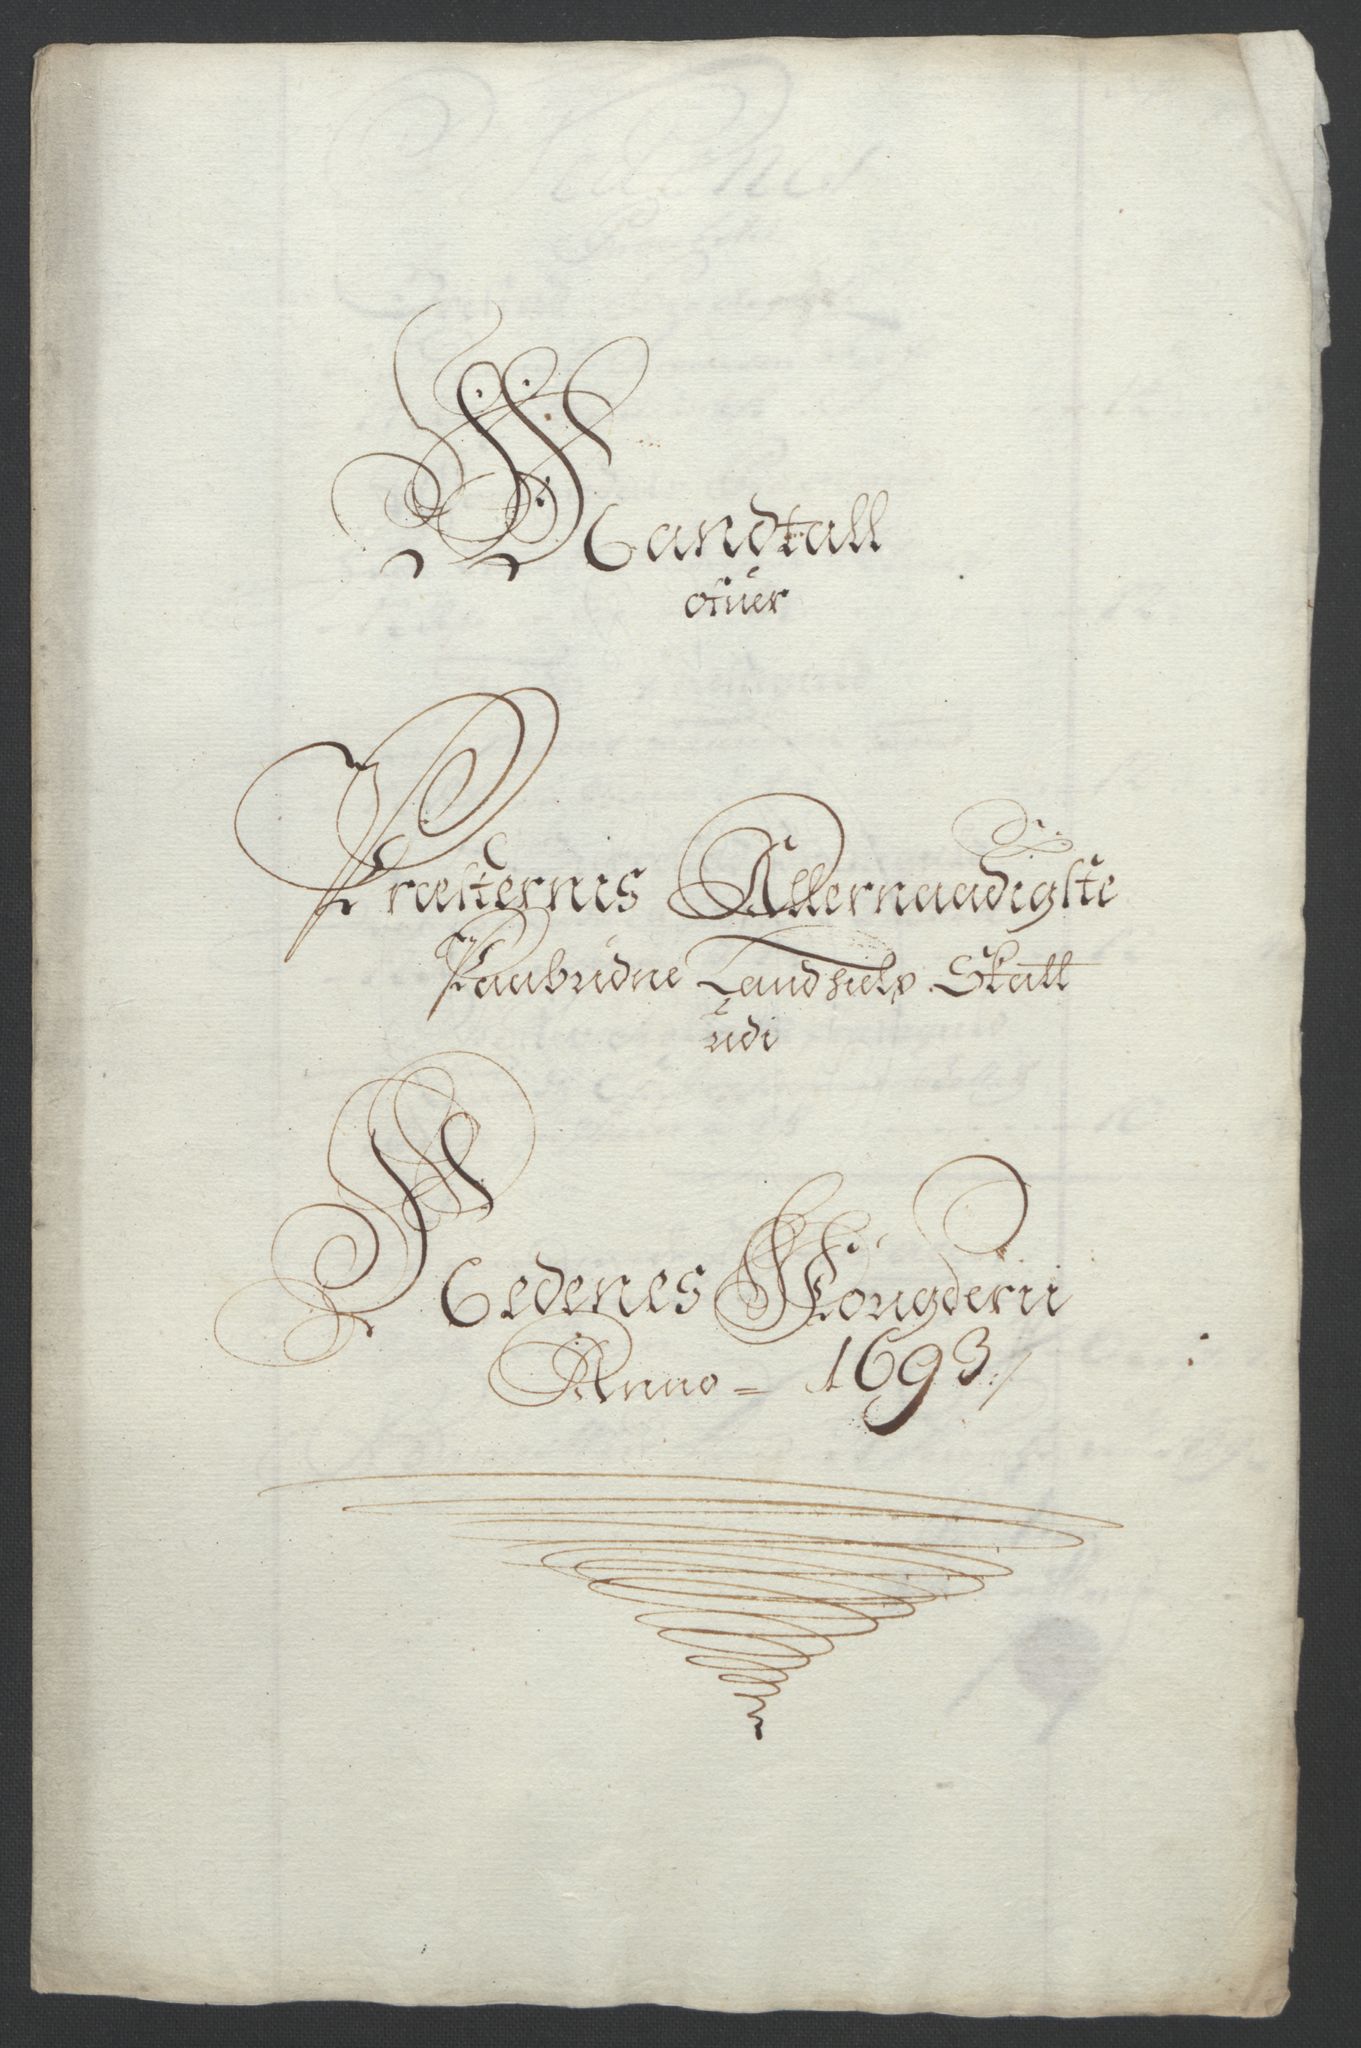 Mandtall
ofuer
Præsternis Allernaadigste
Paabudne Landhielps Skatt
udi
Nedenes Fougderii
Anno = 1693